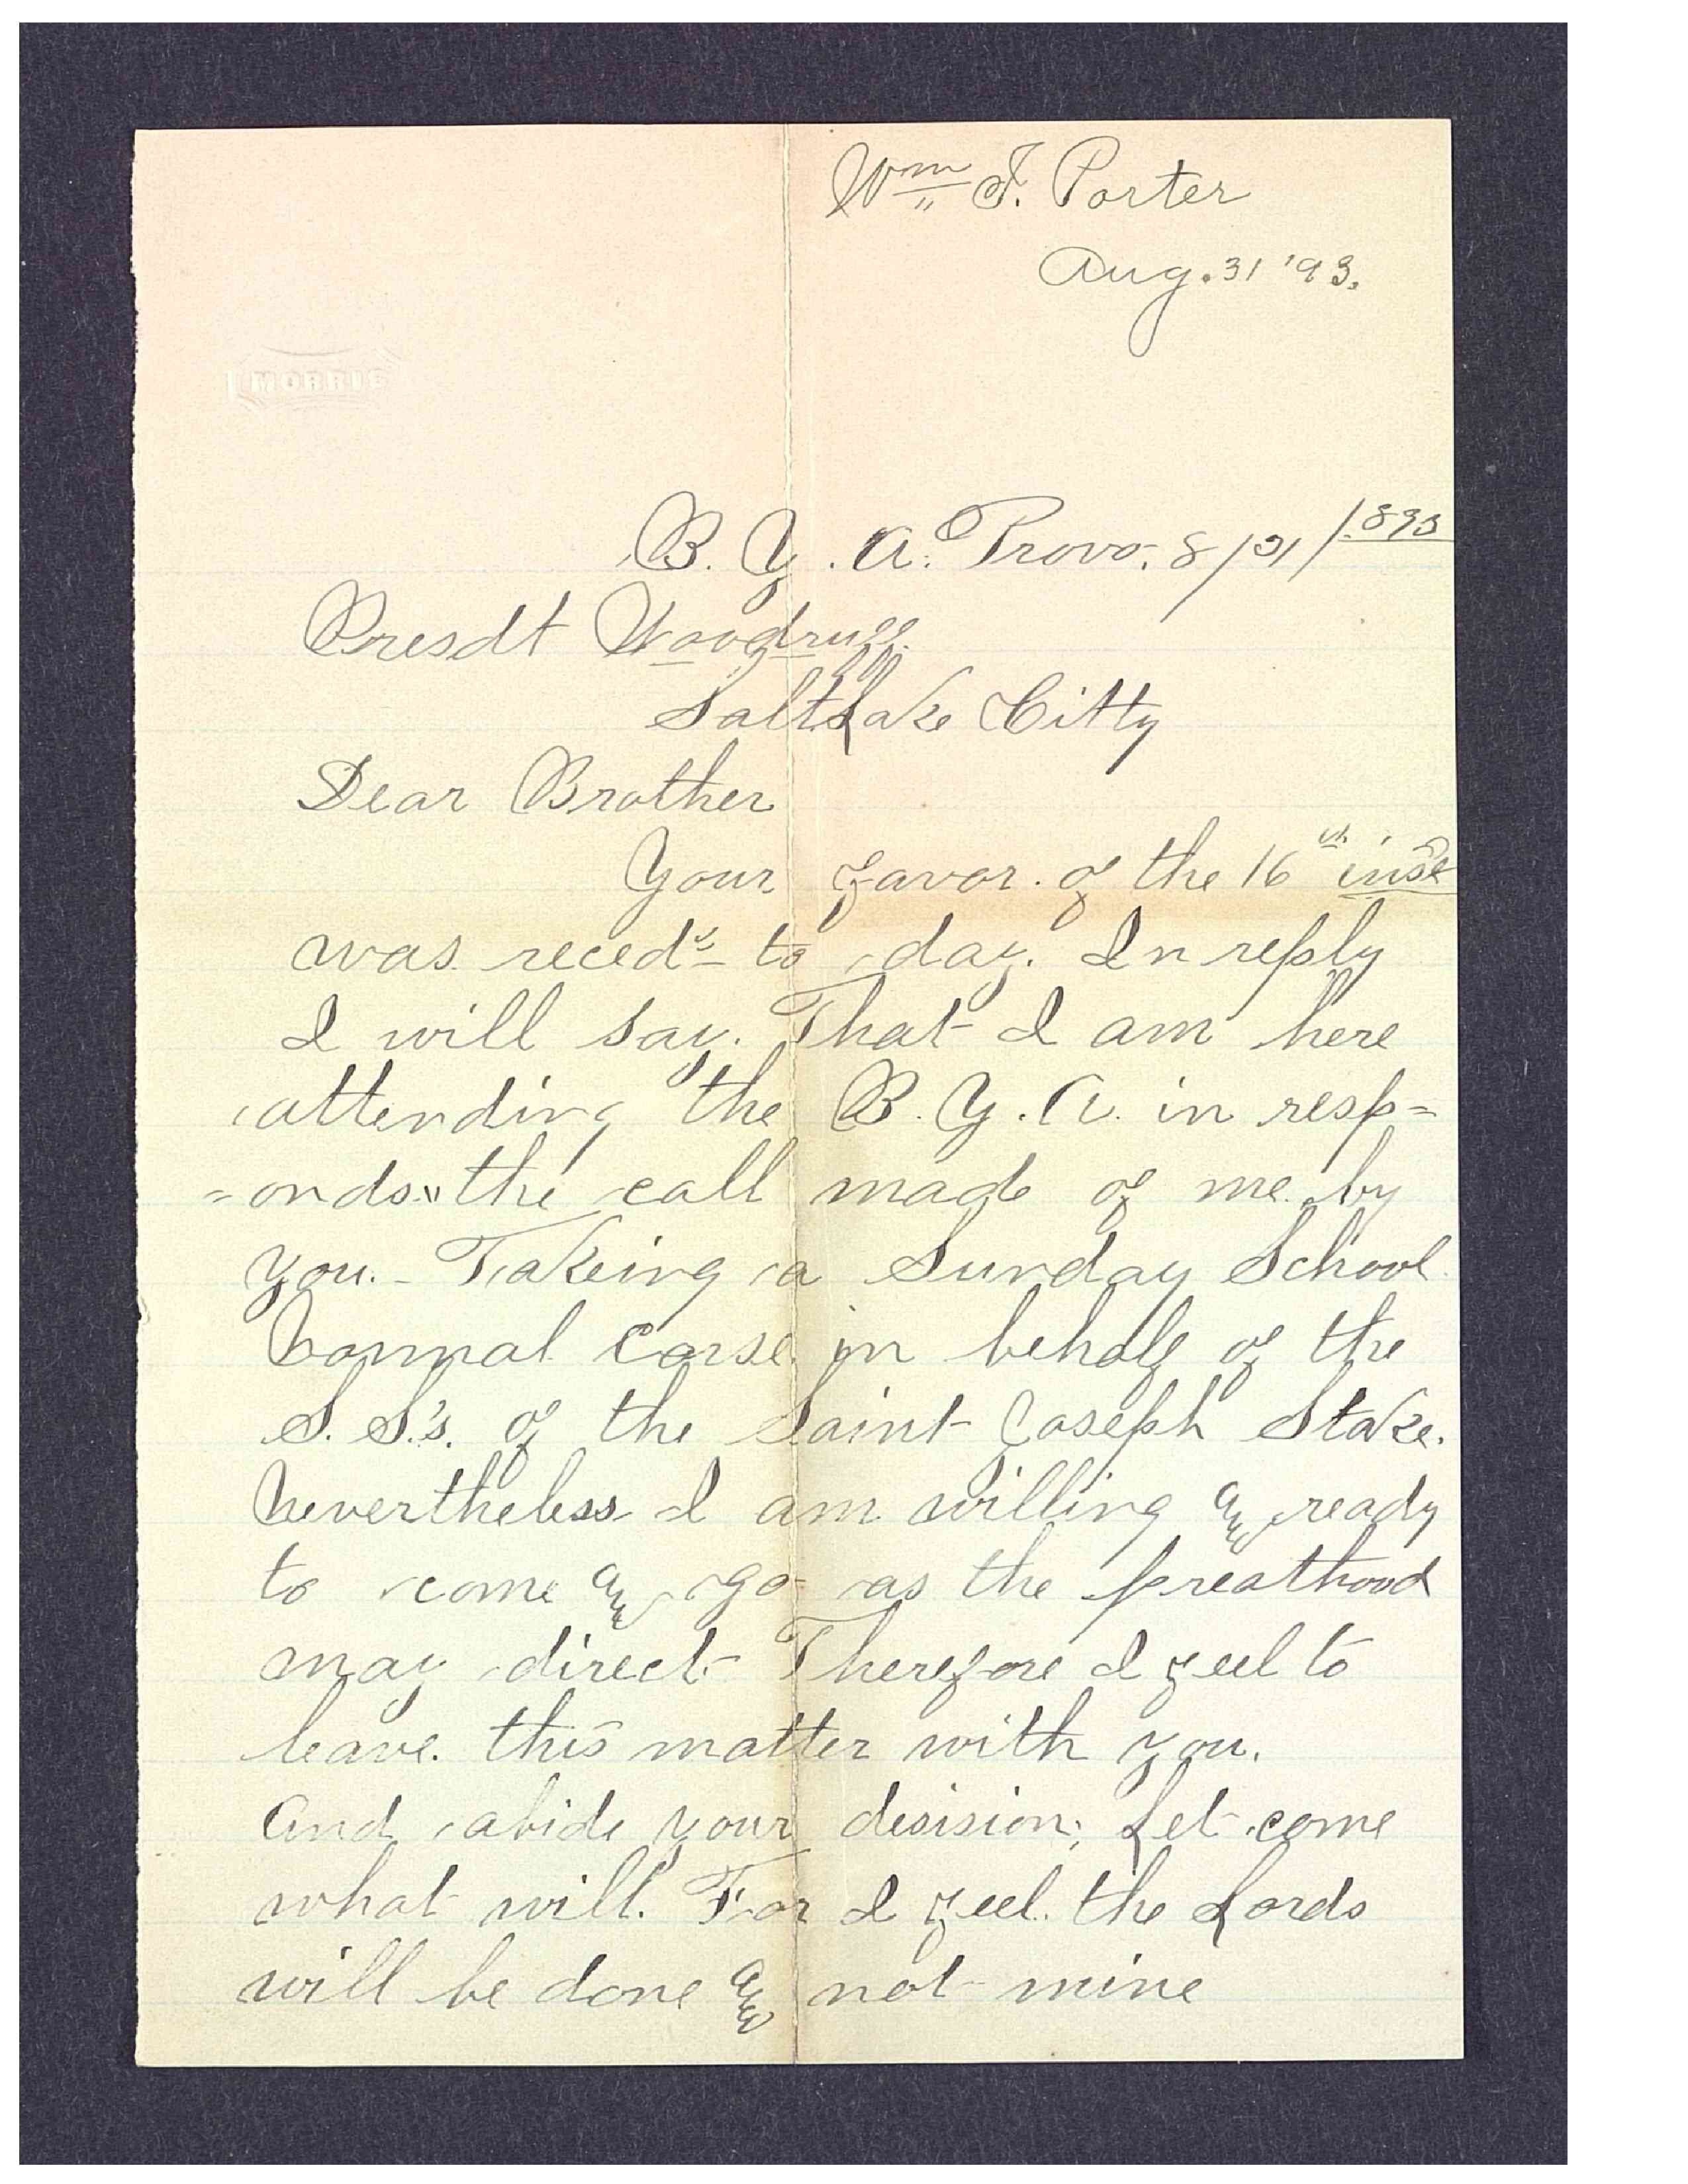 Wm J. Porter
Aug. 31 '93.
MORRIS
B. Y. A. Provo. 8/31/1893
Presdt Woodruff.
Salt Lake Citty
Dear Brother
Your favor. of the 16th inst
was reced to day. In reply
I will say. That I am here
attending the B. Y. A. in resp=
=onds " the call made of me by
you. - Takeing a Sunday School
Normal Corse in behalf of the
S. S.'s. of the Saint Joseph Stake.
Nevertheless I am willing & ready
to come & go as the preasthood
may direct - Therefore I feel to
leave this matter with you.
And abide your desision; Let come
what will. For I feel the Lords
will be done & not mine